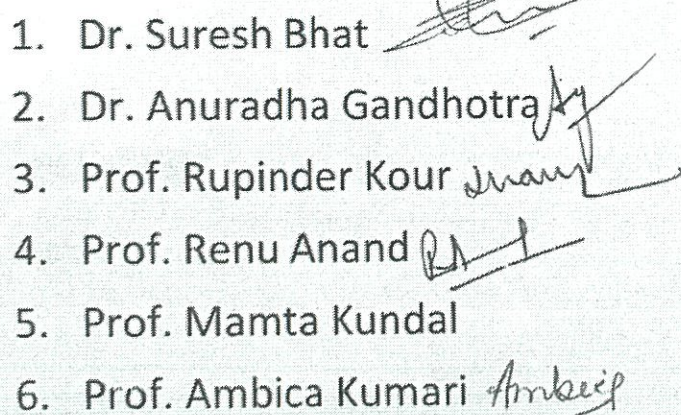 1. Dr. Suresh Bhat
2. Dr. Anuradha Gandhotra
3. Prof. Rupinder Kour
4. Prof. Renu Anand
5. Prof. Mamta Kundal
6. Prof. Ambica Kumari